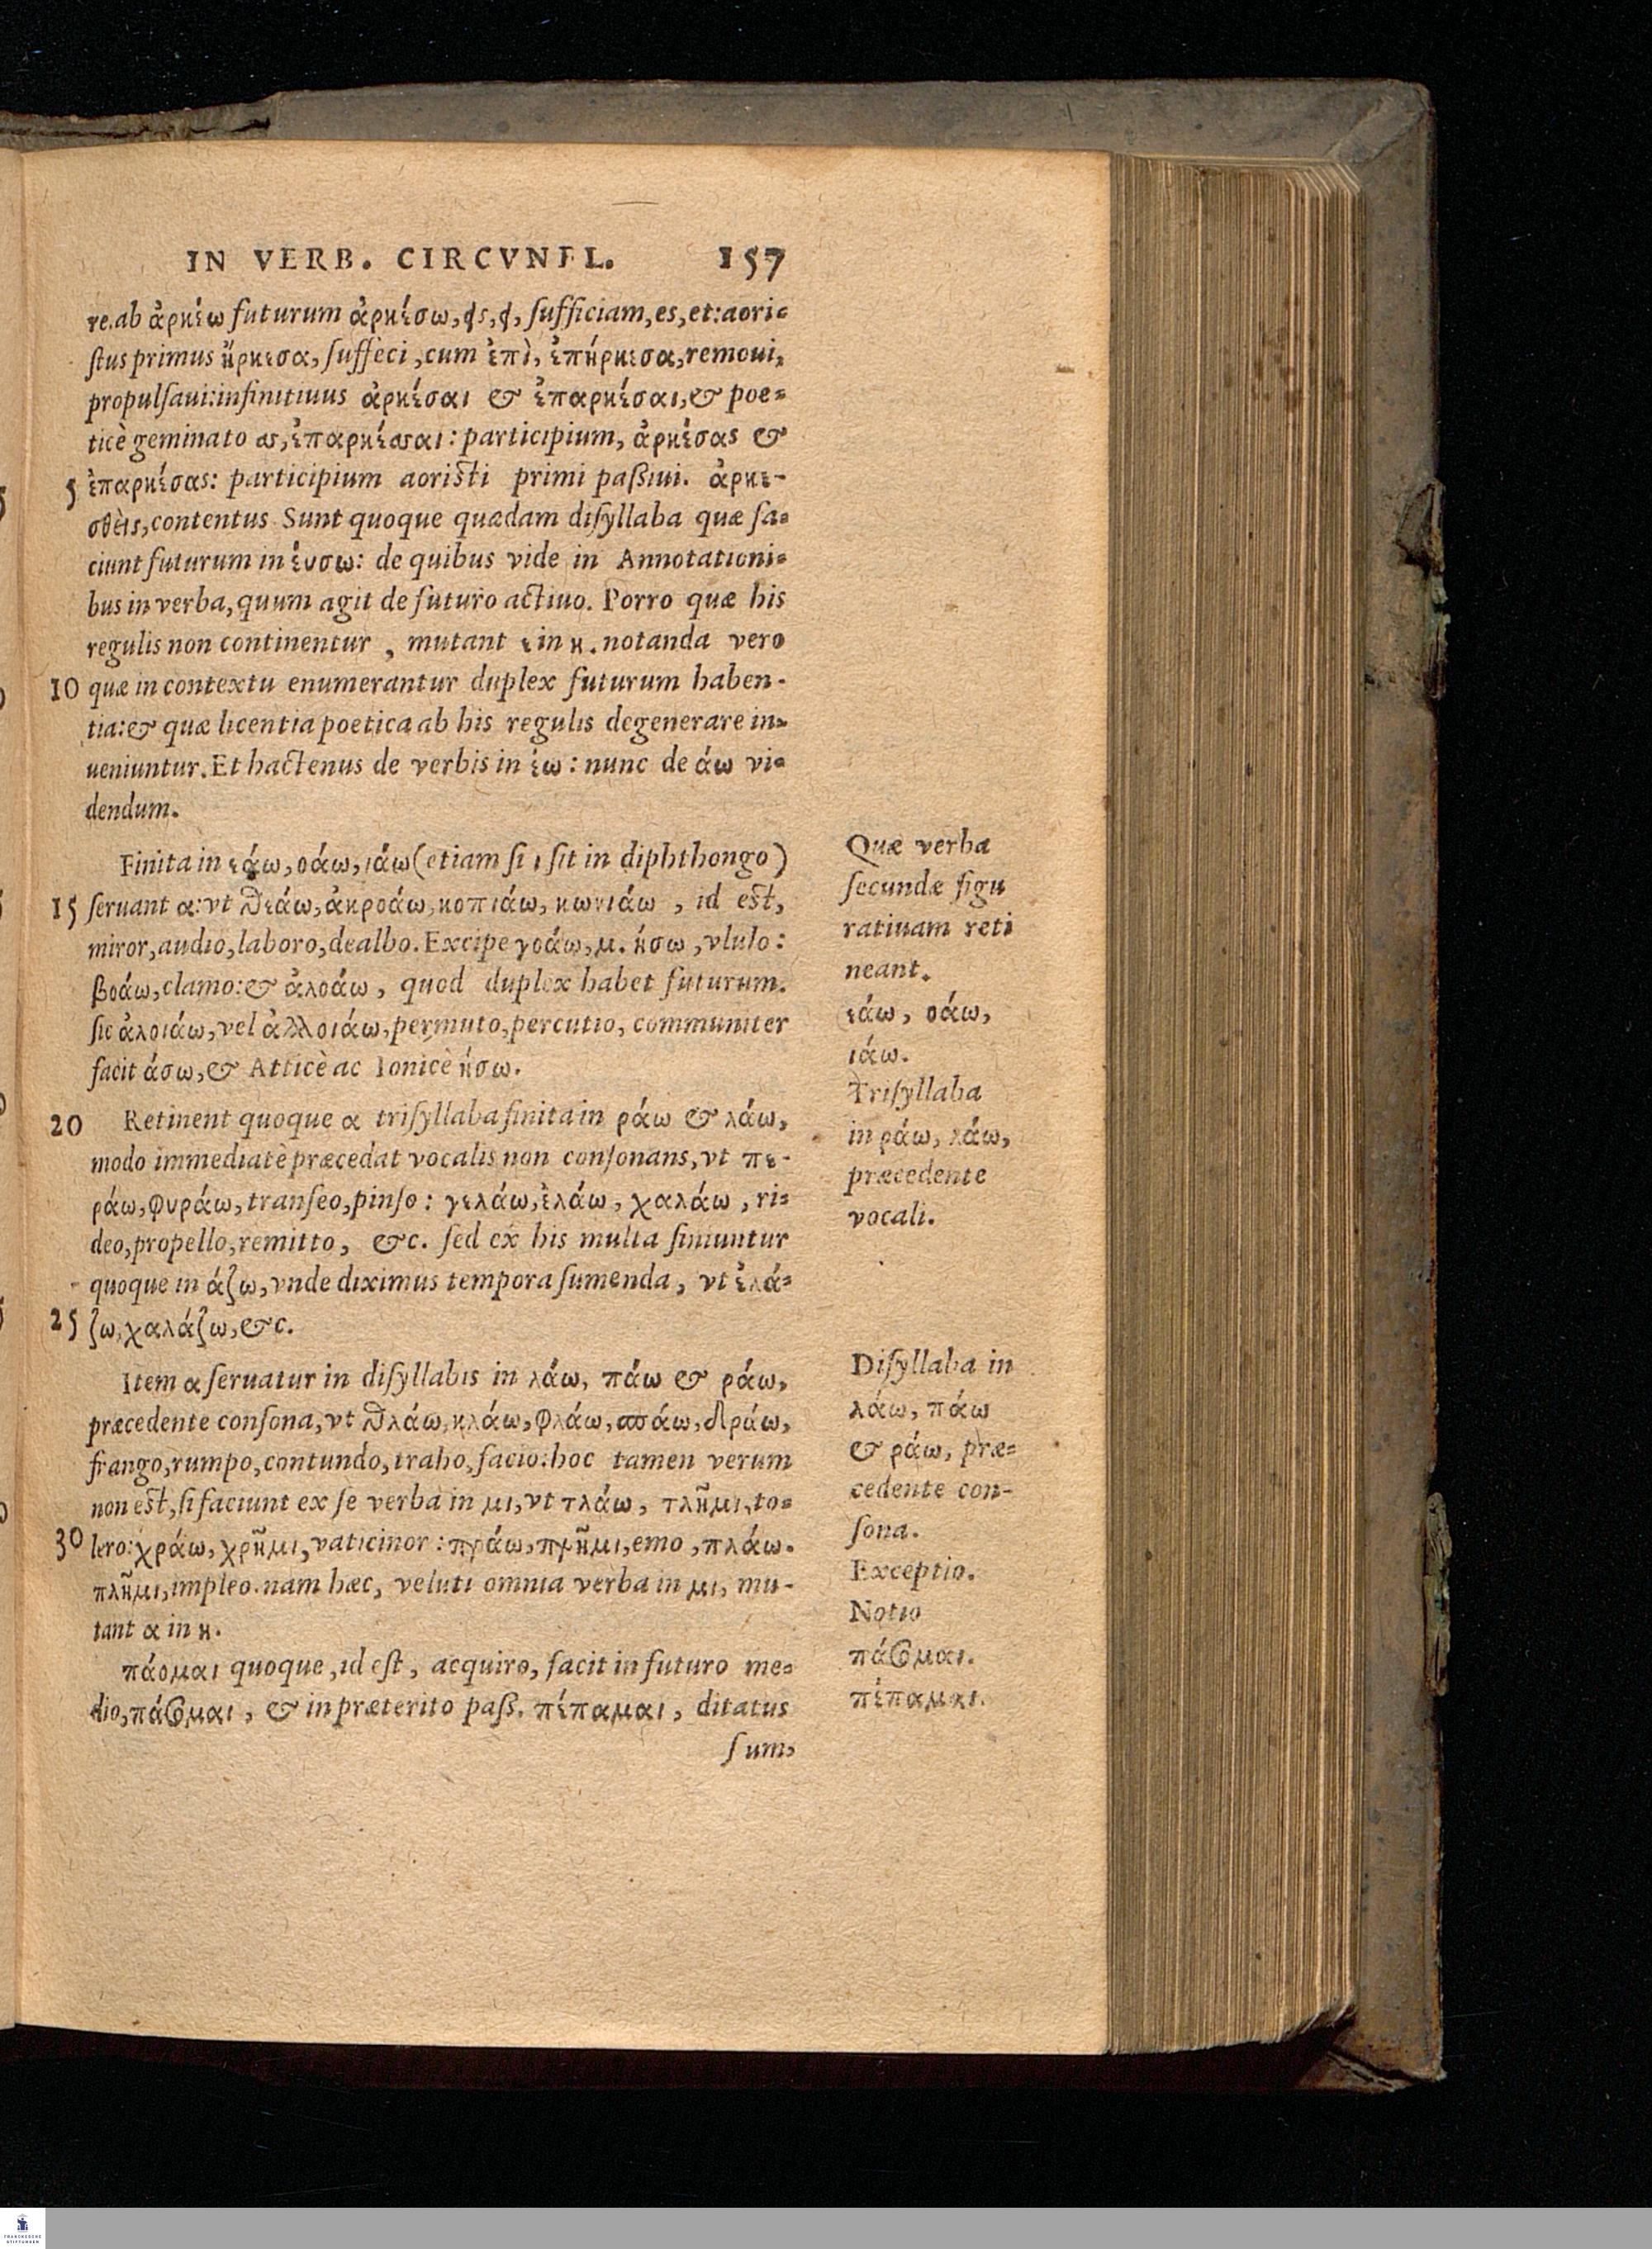 IN VERB. CIRCVNFL. 157
re. ab ἀρκέω futurum ἀρκέσω, εις, ει, sufficiam, es, et: aori-
stus primus ἤρκεσα, suffeci, cum ἐπὶ, ἐπήρκεσα, remoui,
propulsaui: infinitiuus ἀρκέσαι & ἐπαρκέσαι, & poe-
ticè geminato σσ, ἐπαρκέσσαι: participium, ἀρκέσας &
5 ἐπαρκέσας: participium aoristi primi paßiui. ἀρκε-
σθεὶς, contentus Sunt quoque quædam disyllaba quæ fa-
ciunt futurum in έυσω: de quibus vide in Annotationi-
bus in verba, quum agit de futuro actiuo. Porro quæ his
regulis non continentur, mutant ε in η. notanda vero
10 quæ in contextu enumerantur duplex futurum haben-
tia: & quæ licentia poetica ab his regulis degenerare in-
ueniuntur. Et hactenus de verbis in έω: nunc de άω vi-
dendum.
Finita in εάω, οάω, ιάω (etiam si ι sit in diphthongo)
15 seruant α: vt θεάω, ἀκροάω, κοπιάω, κωνιάω, id est,
miror, audio, laboro, dealbo. Excipe γοάω, μ. ήσω, vlulo:
βοάω, clamo: & ἀλοάω, quod duplex habet futurum.
sic ἀλοιάω, vel ἀλλοιάω, permuto, percutio, communiter
facit άσω, & Atticè ac Ionicè ήσω.
20 Retinent quoque α trisyllaba finita in ράω & λάω,
modo immediatè præcedat vocalis non consonans, vt πε-
ράω, φυράω, transeo, pinso: γελάω, ἐλάω, χαλάω, ri-
deo, propello, remitto, &c. sed ex his multa finiuntur
quoque in άζω, vnde diximus tempora sumenda, vt ἐλά-
25 ζω, χαλάζω, &c.
Item α seruatur in disyllabis in λάω, πάω & ράω,
præcedente consona, vt θλάω, κλάω, φλάω, σπάω, δράω,
frango, rumpo, contundo, traho, facio: hoc tamen verum
non est, si faciunt ex se verba in μι, vt τλάω, τλῆμι, to-
30 lero: χράω, χρῆμι, vaticinor: πράω, πρῆμι, emo, πλάω.
πλῆμι, impleo. nam hæc, veluti omnia verba in μι, mu-
tant α in η.
πάομαι quoque, id est, acquiro, facit in futuro me-
dio, πάσομαι, & in præterito paß. πέπαμαι, ditatus
sum,
Quæ verba
secundæ figu
ratiuam reti
neant.
εάω, οάω,
ιάω.
Trisyllaba
in ράω, λάω,
præcedente
vocali.
Disyllaba in
λάω, πάω
& ράω, præ-
cedente con-
sona.
Exceptio.
Notio
πάσομαι.
πέπαμαι.
FRANCKESCHE
STIFTUNGEN